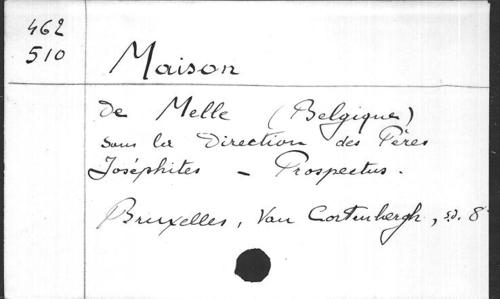 462
510
Maison
de Melle (Belgique)
sous la Direction des Pères
Joséphites - Prospectus.
Bruxelles, Van Cortenbergh, s.d. 8°